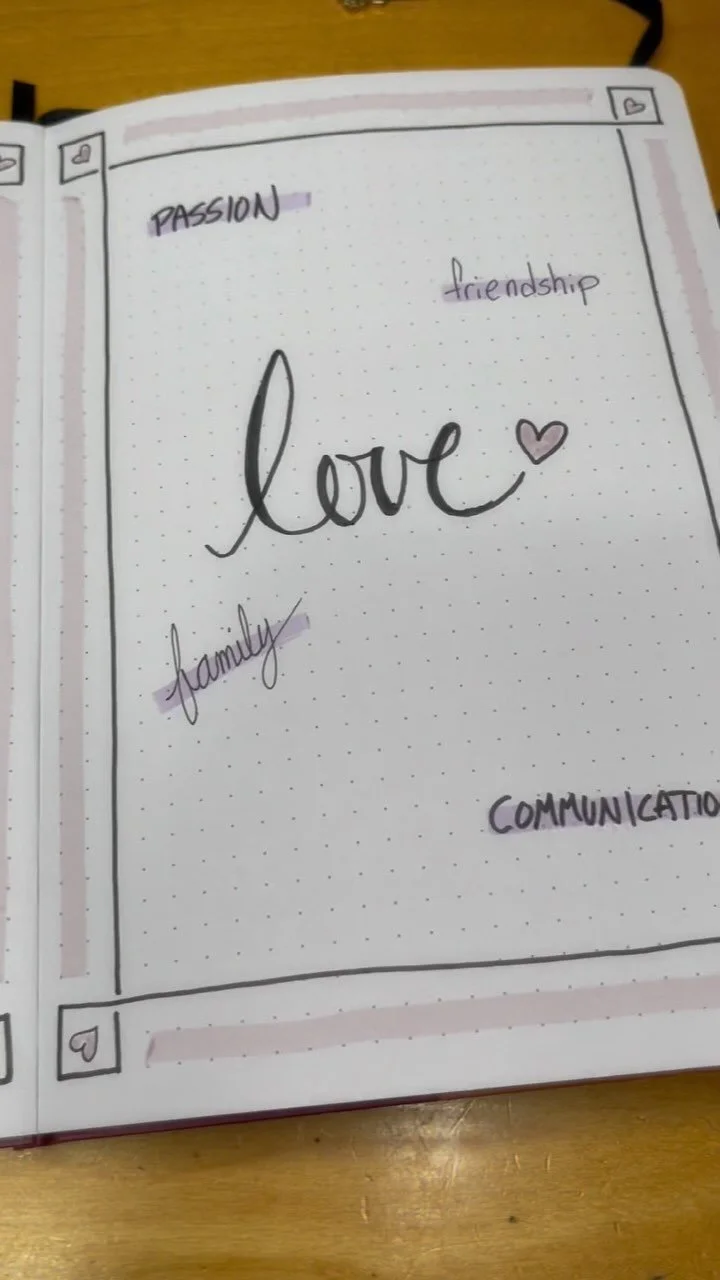 PASSION
friendship
love
family
COMMUNICATIO